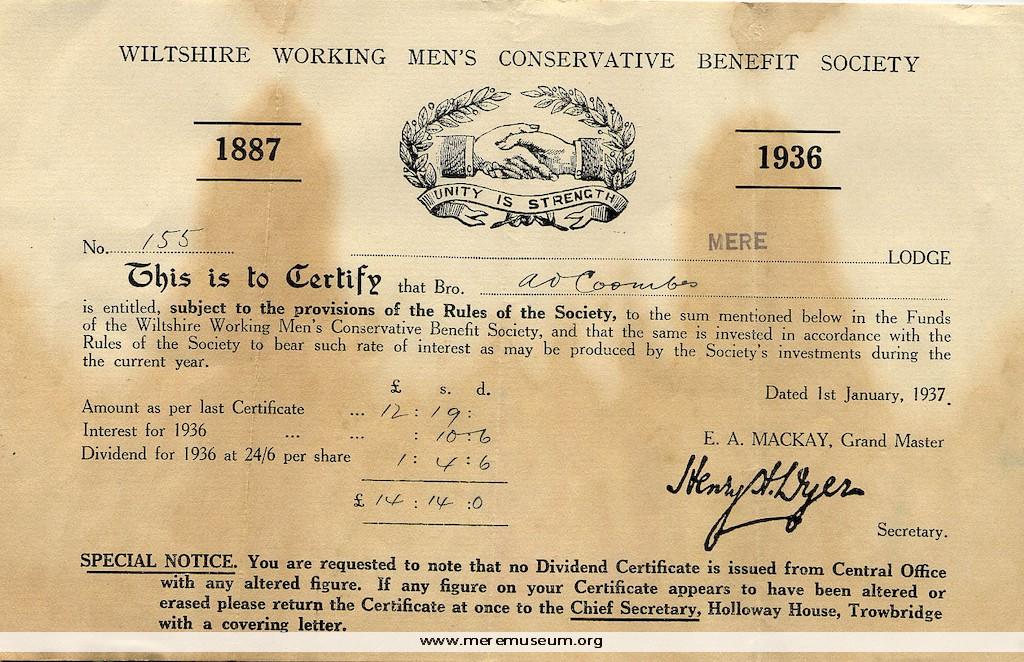 WILTSHIRE WORKING MEN'S CONSERVATIVE BENEFIT SOCIETY
1887
1936
UNITY IS STRENGTH
No. 155 MERE LODGE
This is to Certify that Bro. A D Coombes
is entitled, subject to the provisions of the Rules of the Society, to the sum mentioned below in the Funds
of the Wiltshire Working Men's Conservative Benefit Society, and that the same is invested in accordance with the
Rules of the Society to bear such rate of interest as may be produced by the Society's investments during the
the current year.
£ s. d.
Dated 1st January, 1937.
Amount as per last Certificate ... 12 : 19 :
Interest for 1936 ... ... : 10 : 6
Dividend for 1936 at 24/6 per share 1 : 4 : 6
£ 14 : 14 : 0
E. A. MACKAY, Grand Master
Henry H. Dyer
Secretary.
SPECIAL NOTICE. You are requested to note that no Dividend Certificate is issued from Central Office
with any altered figure. If any figure on your Certificate appears to have been altered or
erased please return the Certificate at once to the Chief Secretary, Holloway House, Trowbridge
with a covering letter.
www.meremuseum.org